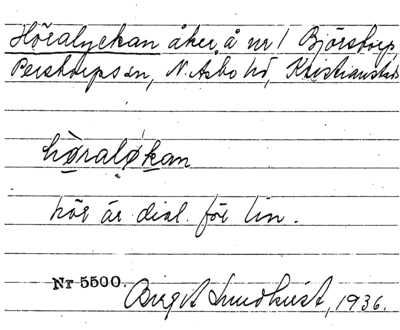 Höralyckan åker å nr 1 Björstorp,
Perstorps sn, N. Åsbo hd, Kristianstads
höralø̀kan
hör är dial. för lin.
Nr 5500. Birgit Lundkvist, 1936.